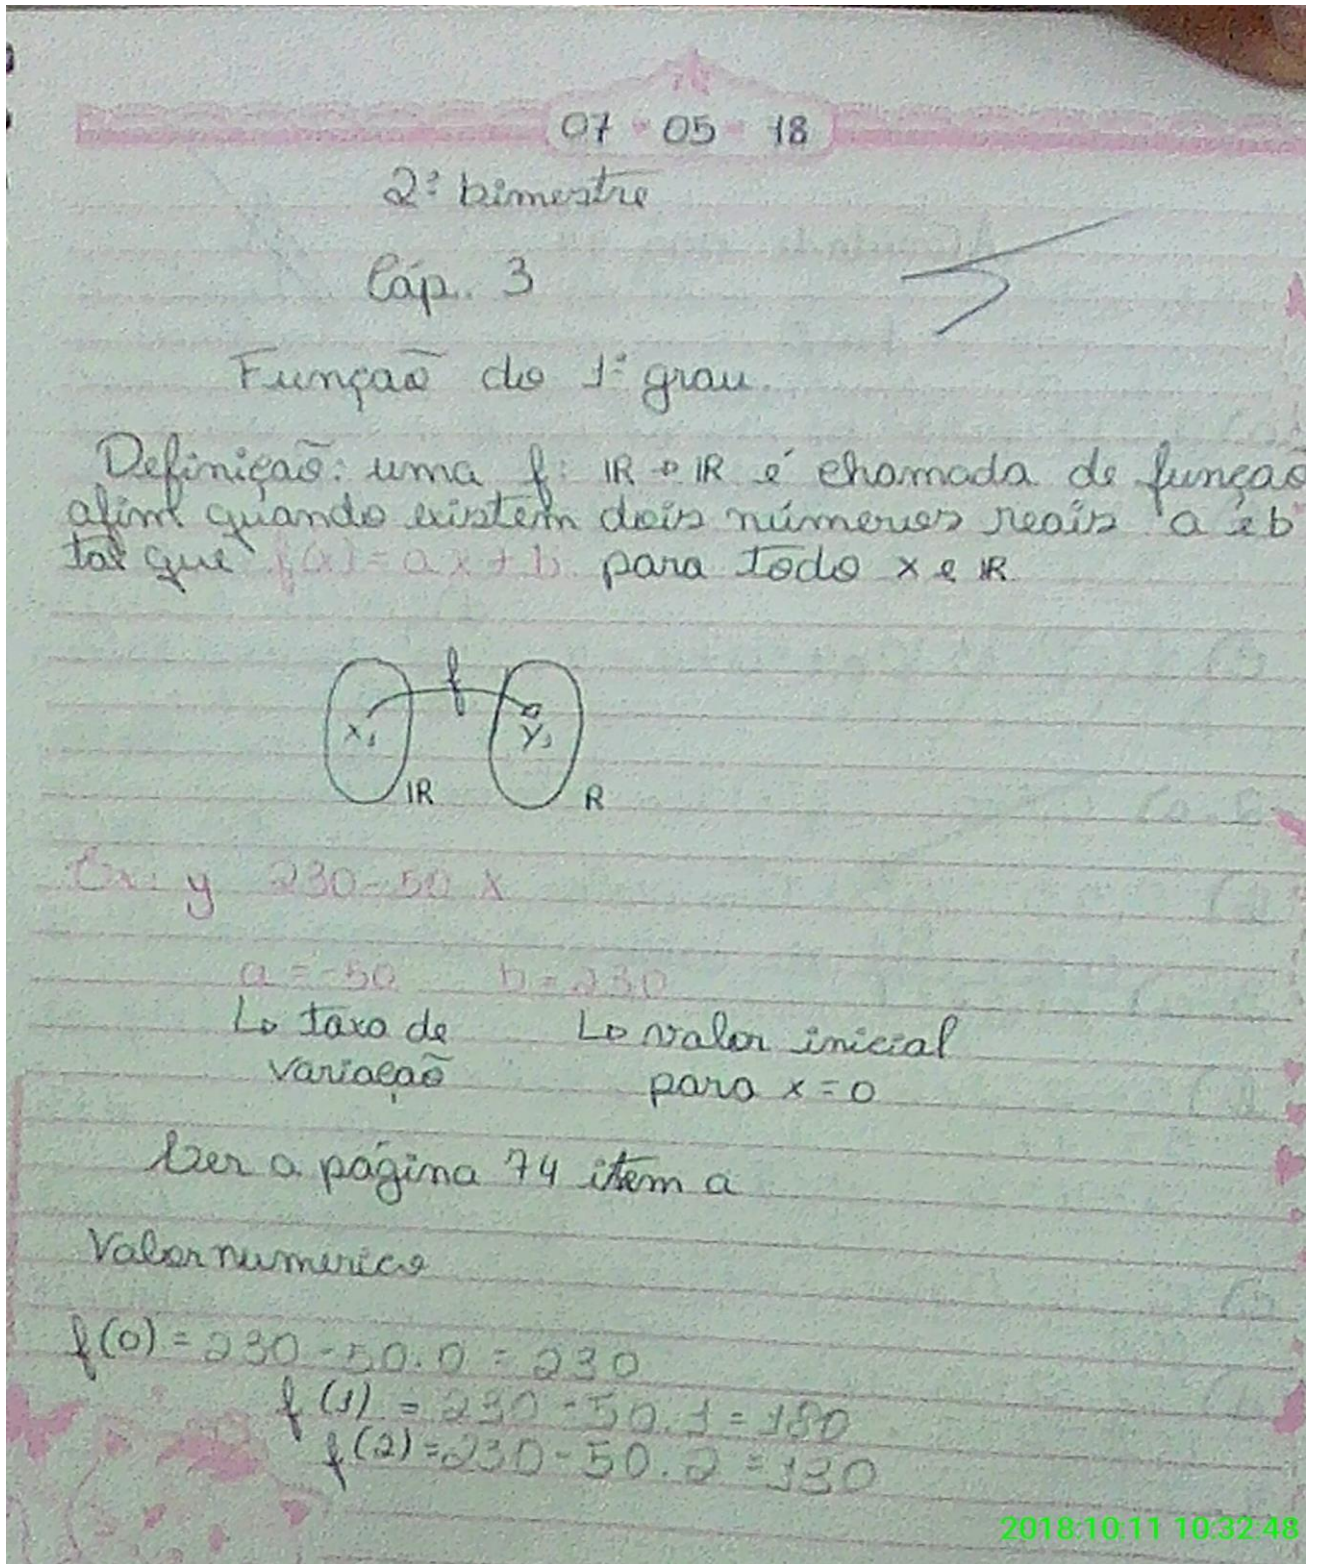 07 - 05 - 18
2º bimestre
Cáp. 3
Função do 1º grau.
Definição: uma f: IR → IR é chamada de função
afim quando existem dois números reais "a e b"
tal que f(x) = ax + b para todo x e IR.
f
x₁ y₁
IR R
Ex: y 230 - 50 x
a = -50 b = 230
↳ taxa de ↳ valor inicial
variação para x = 0
Ler a página 74 item a
Valor numerico
f(0) = 230 - 50 . 0 = 230
f(1) = 230 - 50 . 1 = 180
f(2) = 230 - 50 . 2 = 130
2018:10:11 10:32:48